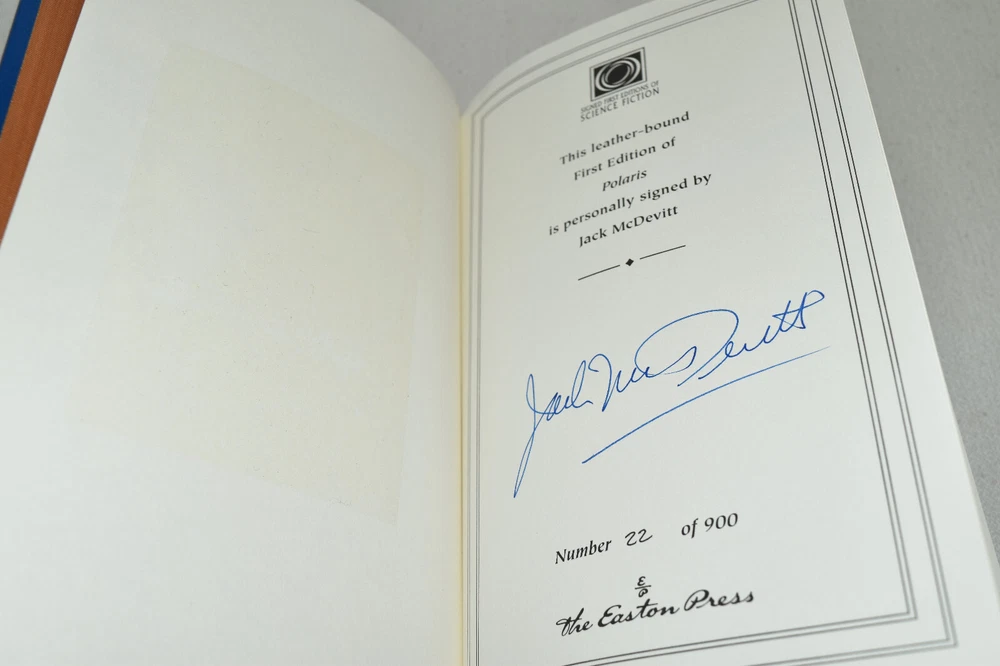 SIGNED FIRST EDITIONS OF
SCIENCE FICTION
This leather-bound
First Edition of
Polaris
is personally signed by
Jack McDevitt
Jack McDevitt
Number 22 of 900
E
P
the Easton Press